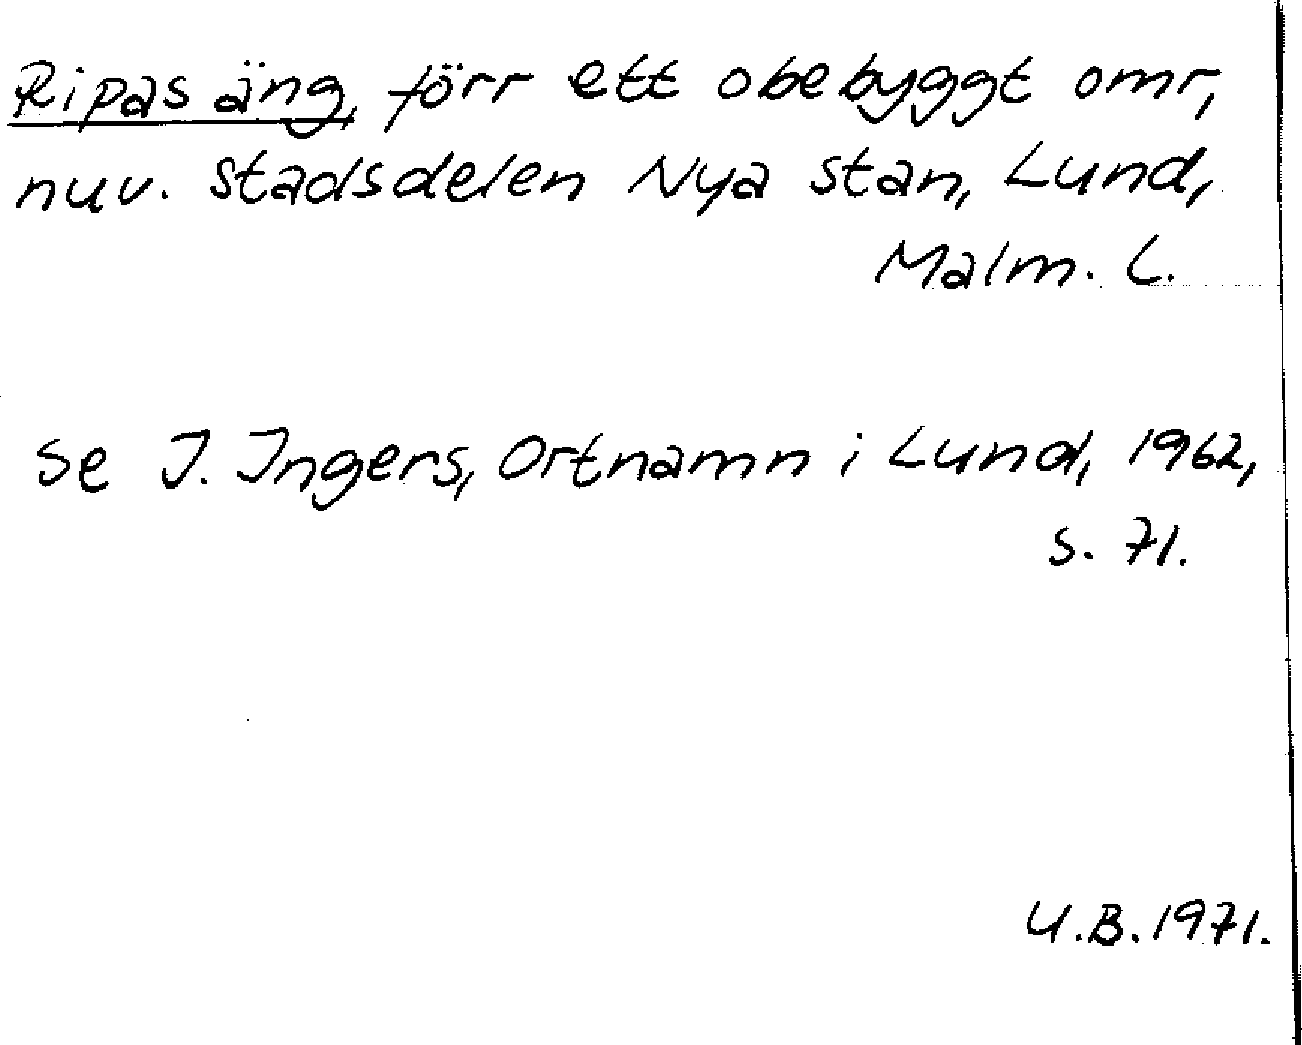 Ripas äng, förr ett obebyggt omr,
nuv. stadsdelen Nya stan, Lund,
Malm. L.
Se I. Ingers, Ortnamn i Lund, 1962,
s. 71.
U.B. 1971.